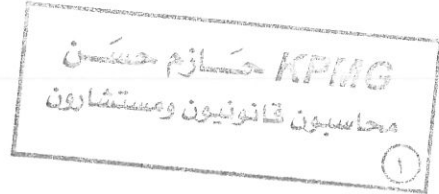 KPMG حــازم حســـن
محاسبون قانونيون ومستشارون
١